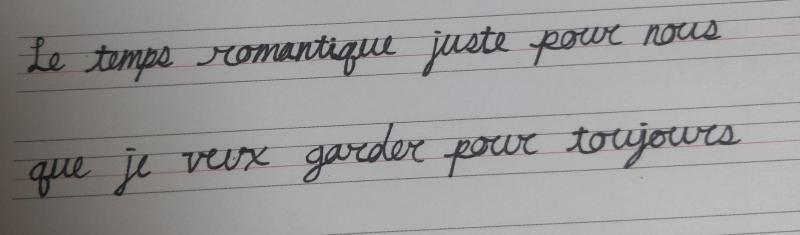 Le temps romantique juste pour nous
que je veux garder pour toujours